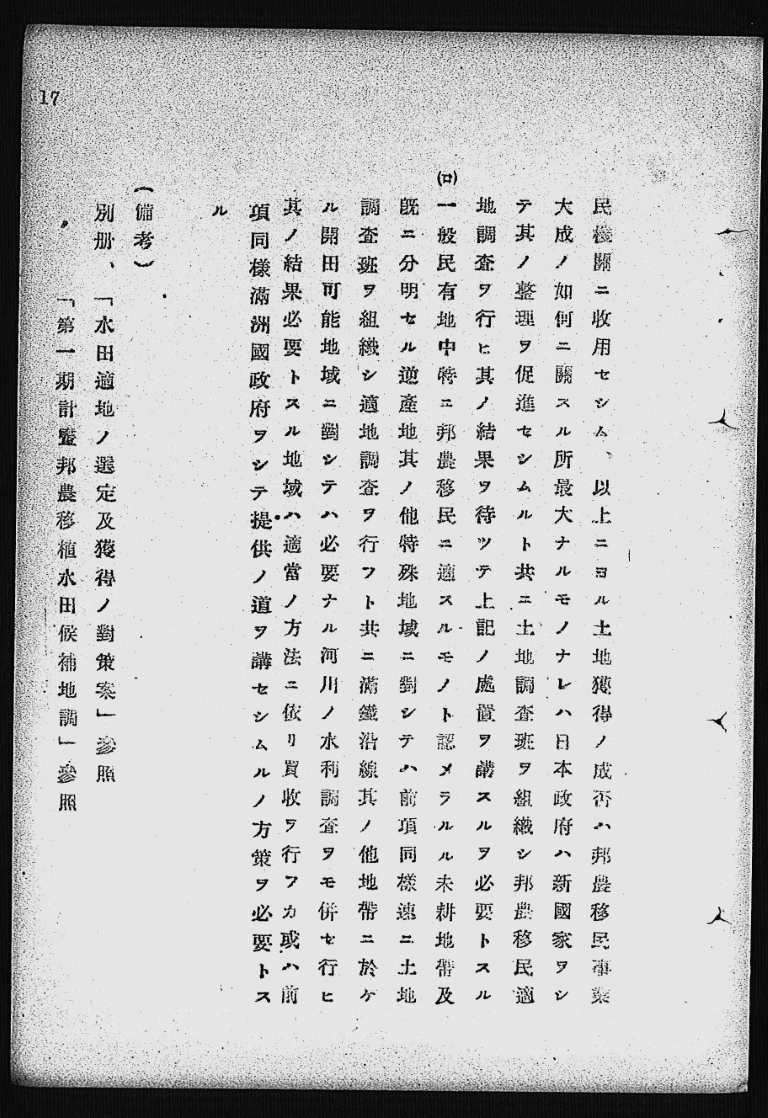 17
民機關ニ收用セシム、以上ニヨル土地獲得ノ成否ハ邦農移民事業
大成ノ如何ニ關スル所最大ナルモノナレハ日本政府ハ新國家ヲシ
テ其ノ整理ヲ促進セシムルト共ニ土地調査班ヲ組織シ邦農移民適
地調査ヲ行ヒ其ノ結果ヲ待ツテ上記ノ處置ヲ講スルヲ必要トスル
(ロ)一般民有地中特ニ邦農移民ニ適スルモノト認メラルル未耕地帶及
既ニ分明セル逆產地其ノ他特殊地域ニ對シテハ前項同樣速ニ土地
調査班ヲ組織シ適地調査ヲ行フト共ニ滿鐵沿線其ノ他地帶ニ於ケ
ル開田可能地域ニ對シテハ必要ナル河川ノ水利調査ヲモ併セ行ヒ
其ノ結果必要トスル地域ハ適當ノ方法ニ依リ買收ヲ行フカ或ハ前
項同樣滿洲國政府ヲシテ提供ノ道ヲ講セシムルノ方策ヲ必要トス
ル
(備考)
別册、「水田適地ノ選定及獲得ノ對策案」參照
〃 「第一期計畫邦農移植水田候補地調」參照